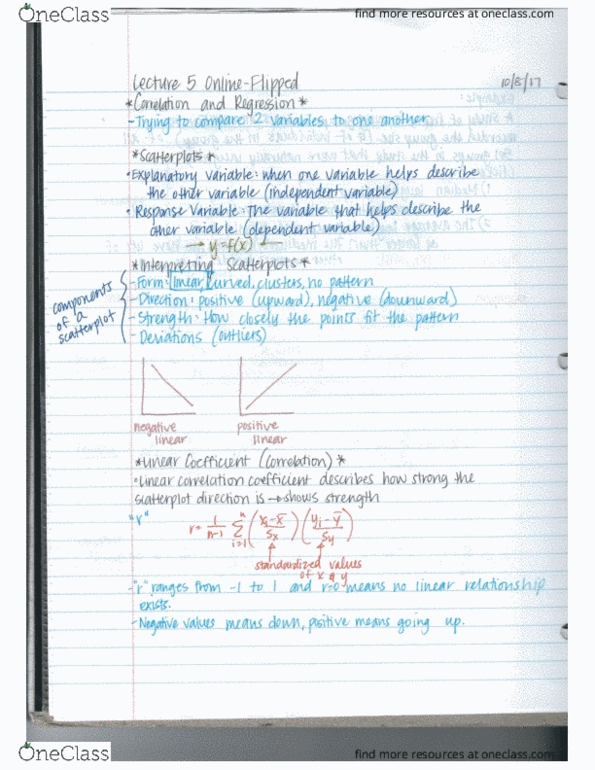 OneClass
find more resources at oneclass.com
Lecture 5 Online-Flipped 10/8/17
*Correlation and Regression*
-Trying to compare 2 variables to one another
*Scatterplots*
•Explanatory variable: when one variable helps describe
the other variable (independent variable)
•Response Variable: The variable that helps describe the
other variable (dependent variable)
→ y=f(x) ←
*Interpreting Scatterplots*
components
of a
scatterplot
-Form: linear, curved, clusters, no pattern
-Direction: positive (upward), negative (downward)
-Strength: How closely the points fit the pattern
-Deviations (outliers)
negative
linear
positive
linear
*Linear Coefficient (Correlation)*
•Linear correlation coefficient describes how strong the
scatterplot direction is → shows strength
"r"
r = 1/(n-1) Σ i=1 n ((xi - x̄)/Sx) ((yi - ȳ)/Sy)
standardized values
of x & y
-"r" ranges from -1 to 1 and r=0 means no linear relationship
exists.
-Negative values means down, positive means going up.
OneClass
find more resources at oneclass.com